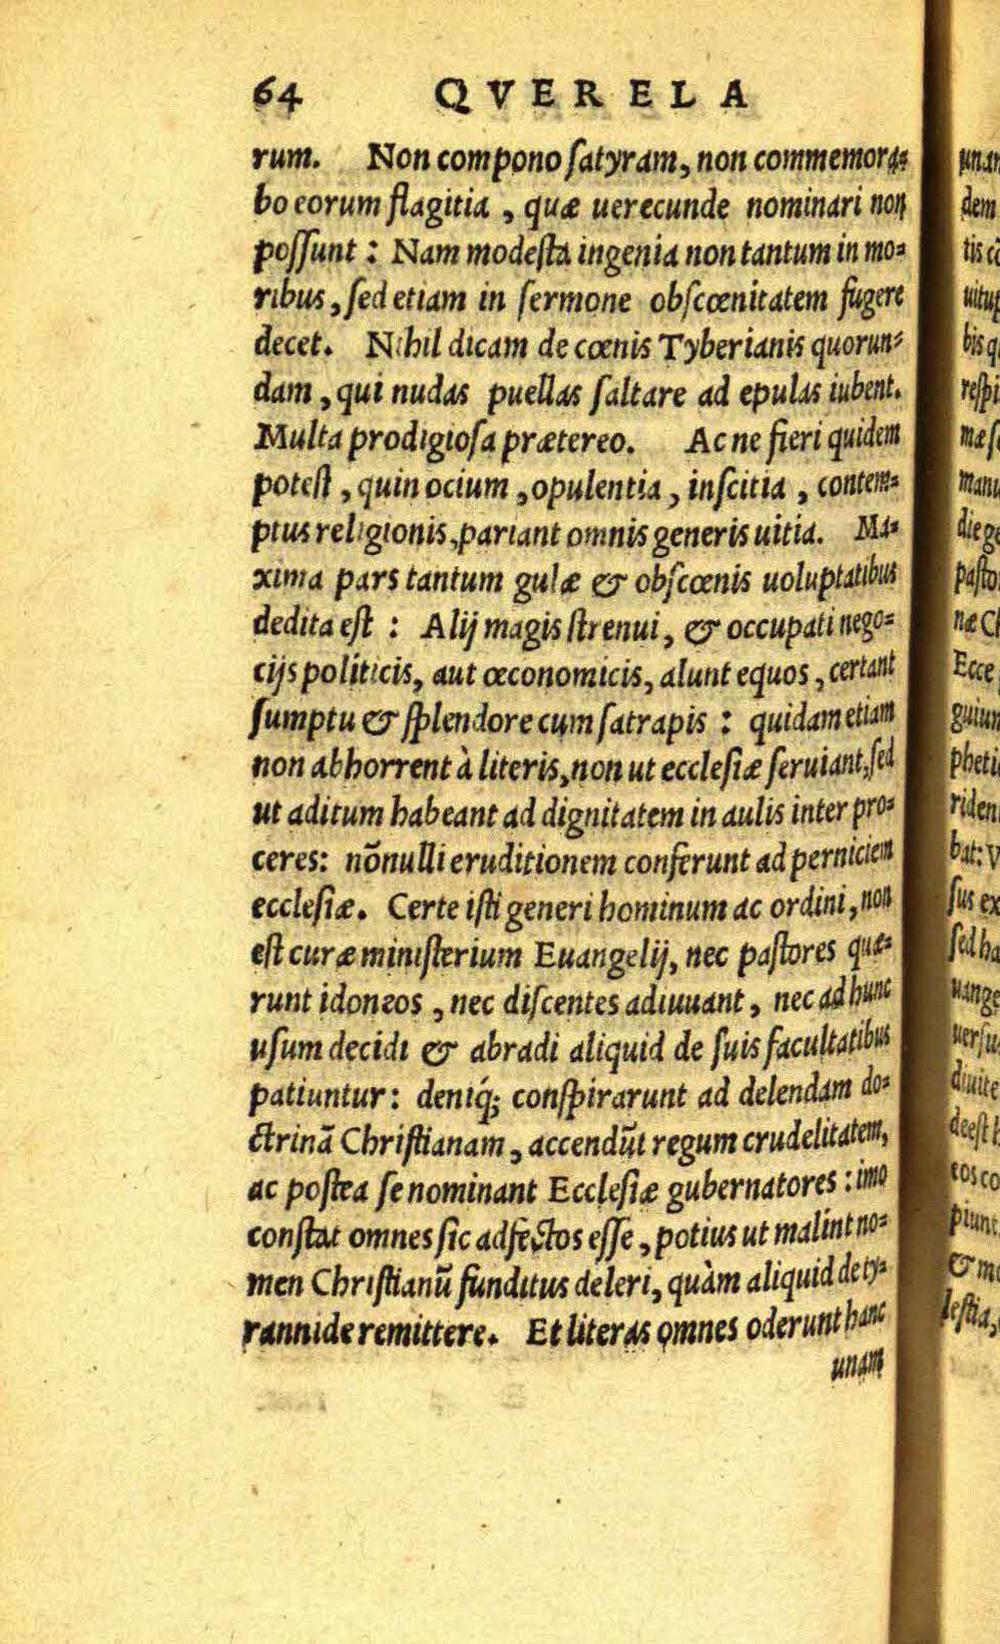 64 QVERELA
rum. Non compono ſatyram, non commemora⸗
bo eorum flagitia, quæ uerecunde nominari non
poſſunt: Nam modeſta ingenia non tantum in mo⸗
ribus, ſed etiam in ſermone obſcœnitatem fugere
decet. Nihil dicam de cœnis Tyberianis quorun⸗
dam, qui nudas puellas ſaltare ad epulas iubent.
Multa prodigioſa prætereo. Ac ne fieri quidem
poteſt, quin ocium, opulentia, inſcitia, contem⸗
ptus religionis, pariant omnis generis uitia. Ma⸗
xima pars tantum gulæ & obſcœnis uoluptatibus
dedita eſt: Alij magis ſtrenui, & occupati nego⸗
cijs politicis, aut œconomicis, alunt equos, certant
ſumptu & ſplendore cum ſatrapis: quidam etiam
non abhorrent à literis, non ut eccleſiæ ſeruiant, ſed
ut aditum habeant ad dignitatem in aulis inter pro⸗
ceres: nõnulli eruditionem conferunt ad perniciem
eccleſiæ. Certe iſti generi hominum ac ordini, non
eſt curæ miniſterium Euangelij, nec paſtores quæ⸗
runt idoneos, nec diſcentes adiuuant, nec ad hunc
uſum decidi & abradi aliquid de ſuis facultatibus
patiuntur: deniq́; conſpirarunt ad delendam do⸗
ctrinã Chriſtianam, accendũt regum crudelitatem,
ac poſtea ſe nominant Eccleſiæ gubernatores: imo
conſtat omnes ſic adfectos eſſe, potius ut malint no⸗
men Chriſtianũ funditus deleri, quàm aliquid de ty⸗
rannide remittere. Et literas omnes oderunt hanc
unam